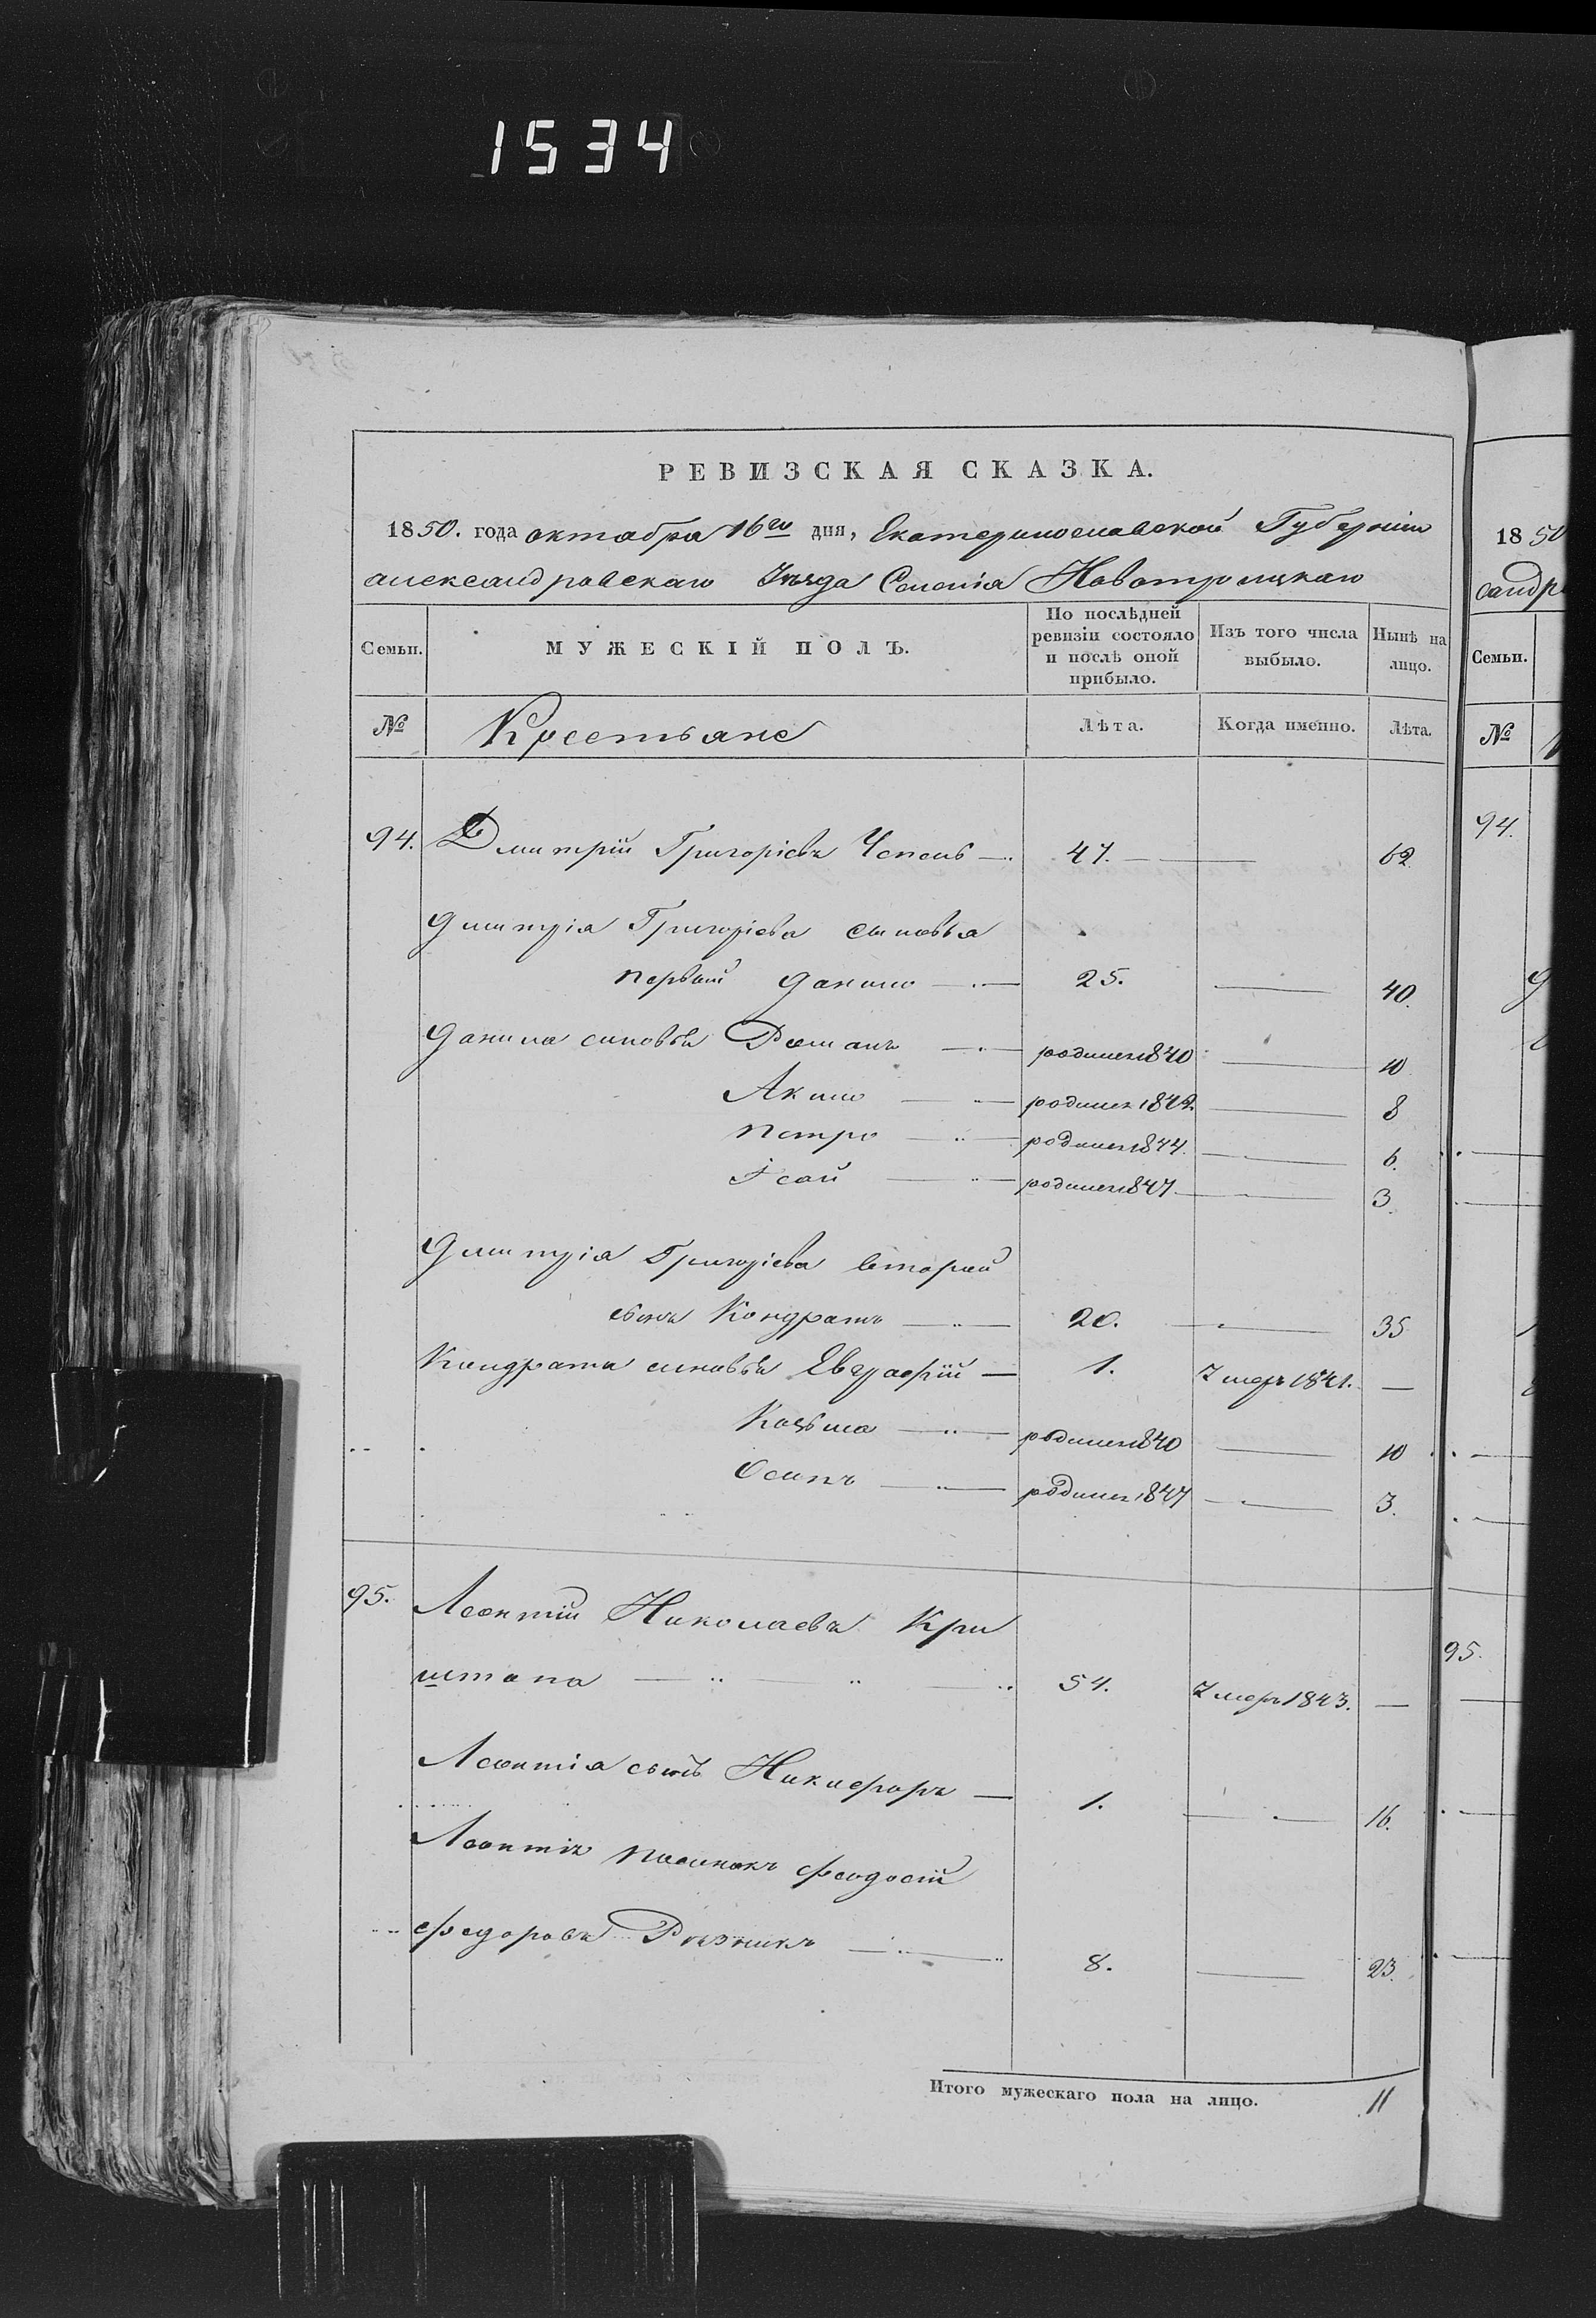 1534
РЕВИЗСКАЯ СКАЗКА.
1850. года октабра 16го дня, Екатеринославской Губерніи
александровскаго Уѣзда Селенія Новотроицкаго
Семьи. МУЖЕСКІЙ ПОЛЪ. По послѣдней ревизіи состояло и послѣ оной прибыло. Изъ того числа выбыло. Нынѣ на лицо.
№ Крестьяне Лѣта. Когда именно. Лѣта.
94. Дмитрій Григоріевъ Чепель 47. 62
Дмитрія Григоріева сыновья
первый Данило 25. 40.
Данила сыновья Романъ родился 1840 10
Акимъ родился 1842 8
Петро родился 1844. 6.
Ісай родился 1847 3.
Дмитрія Григоріева вторый
сынъ Кондратъ 20. 35
Кондрата сыновья Евграфій 1. Умеръ 1841. —
Козьма родился 1840 10
Осипъ родился 1847 3.
95. Леонтій Николаевъ Кри
штопа 54. Умеръ 1843. —
Леонтія сынъ Никифоръ 1. 16.
Леонтія пасынокъ Феодосій
Федоровъ Рѣзникъ 8. 23.
Итого мужескаго пола на лицо. 11
1850
сандр
Семьи.
№
94.
95.